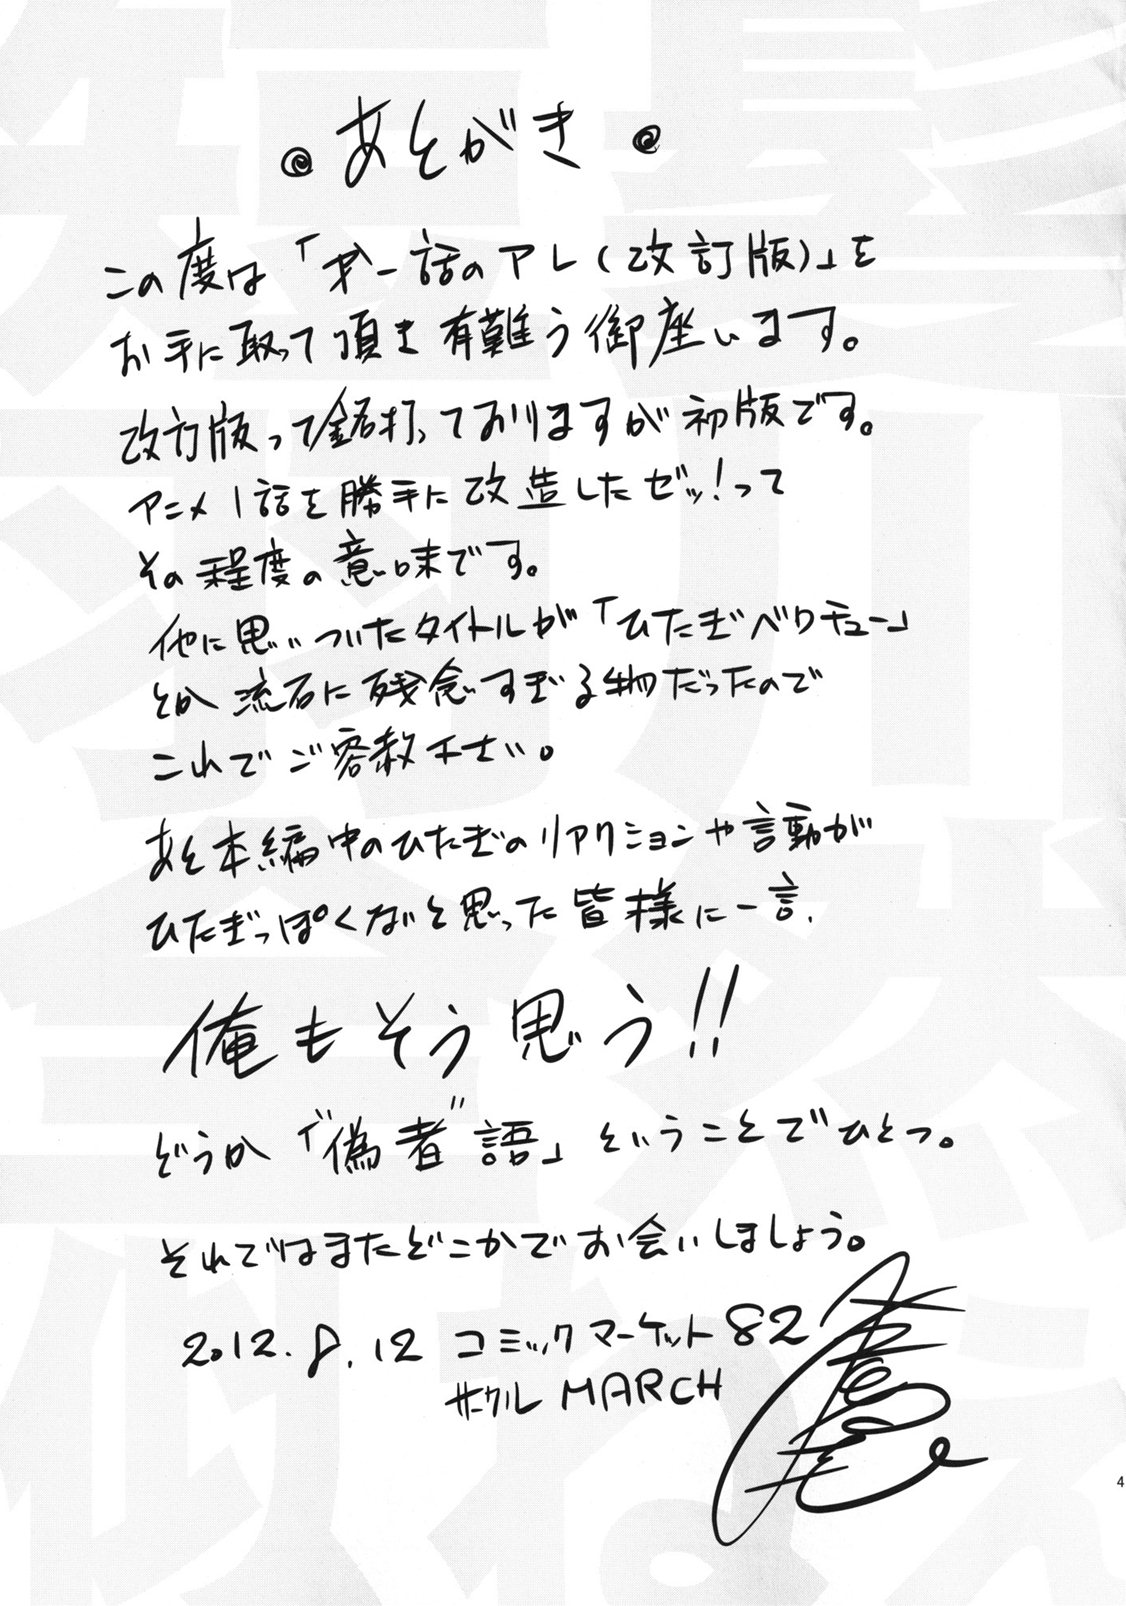 あとがき
この度は「才一話のアレ(改訂版)」を
お手に取って頂き有難う御座います。
改訂版って銘打っておりますが初版です。
アニメ1話を勝手に改造したゼッ!って
その程度の意味です。
他に思いついたタイトルが「ひたぎベクチュー」
とか流石に残念すぎる物だったので
これでご容赦下さい。
あと本編中のひたぎのリアクションや言動が
ひたぎっぽくないと思った皆様に一言、
俺もそう思う!!
どうか「"偽者"語」ということでひとつ。
それではまたどこかでお会いしましょう。
2012.8.12 コミックマーケット82
サークルMARCH
4